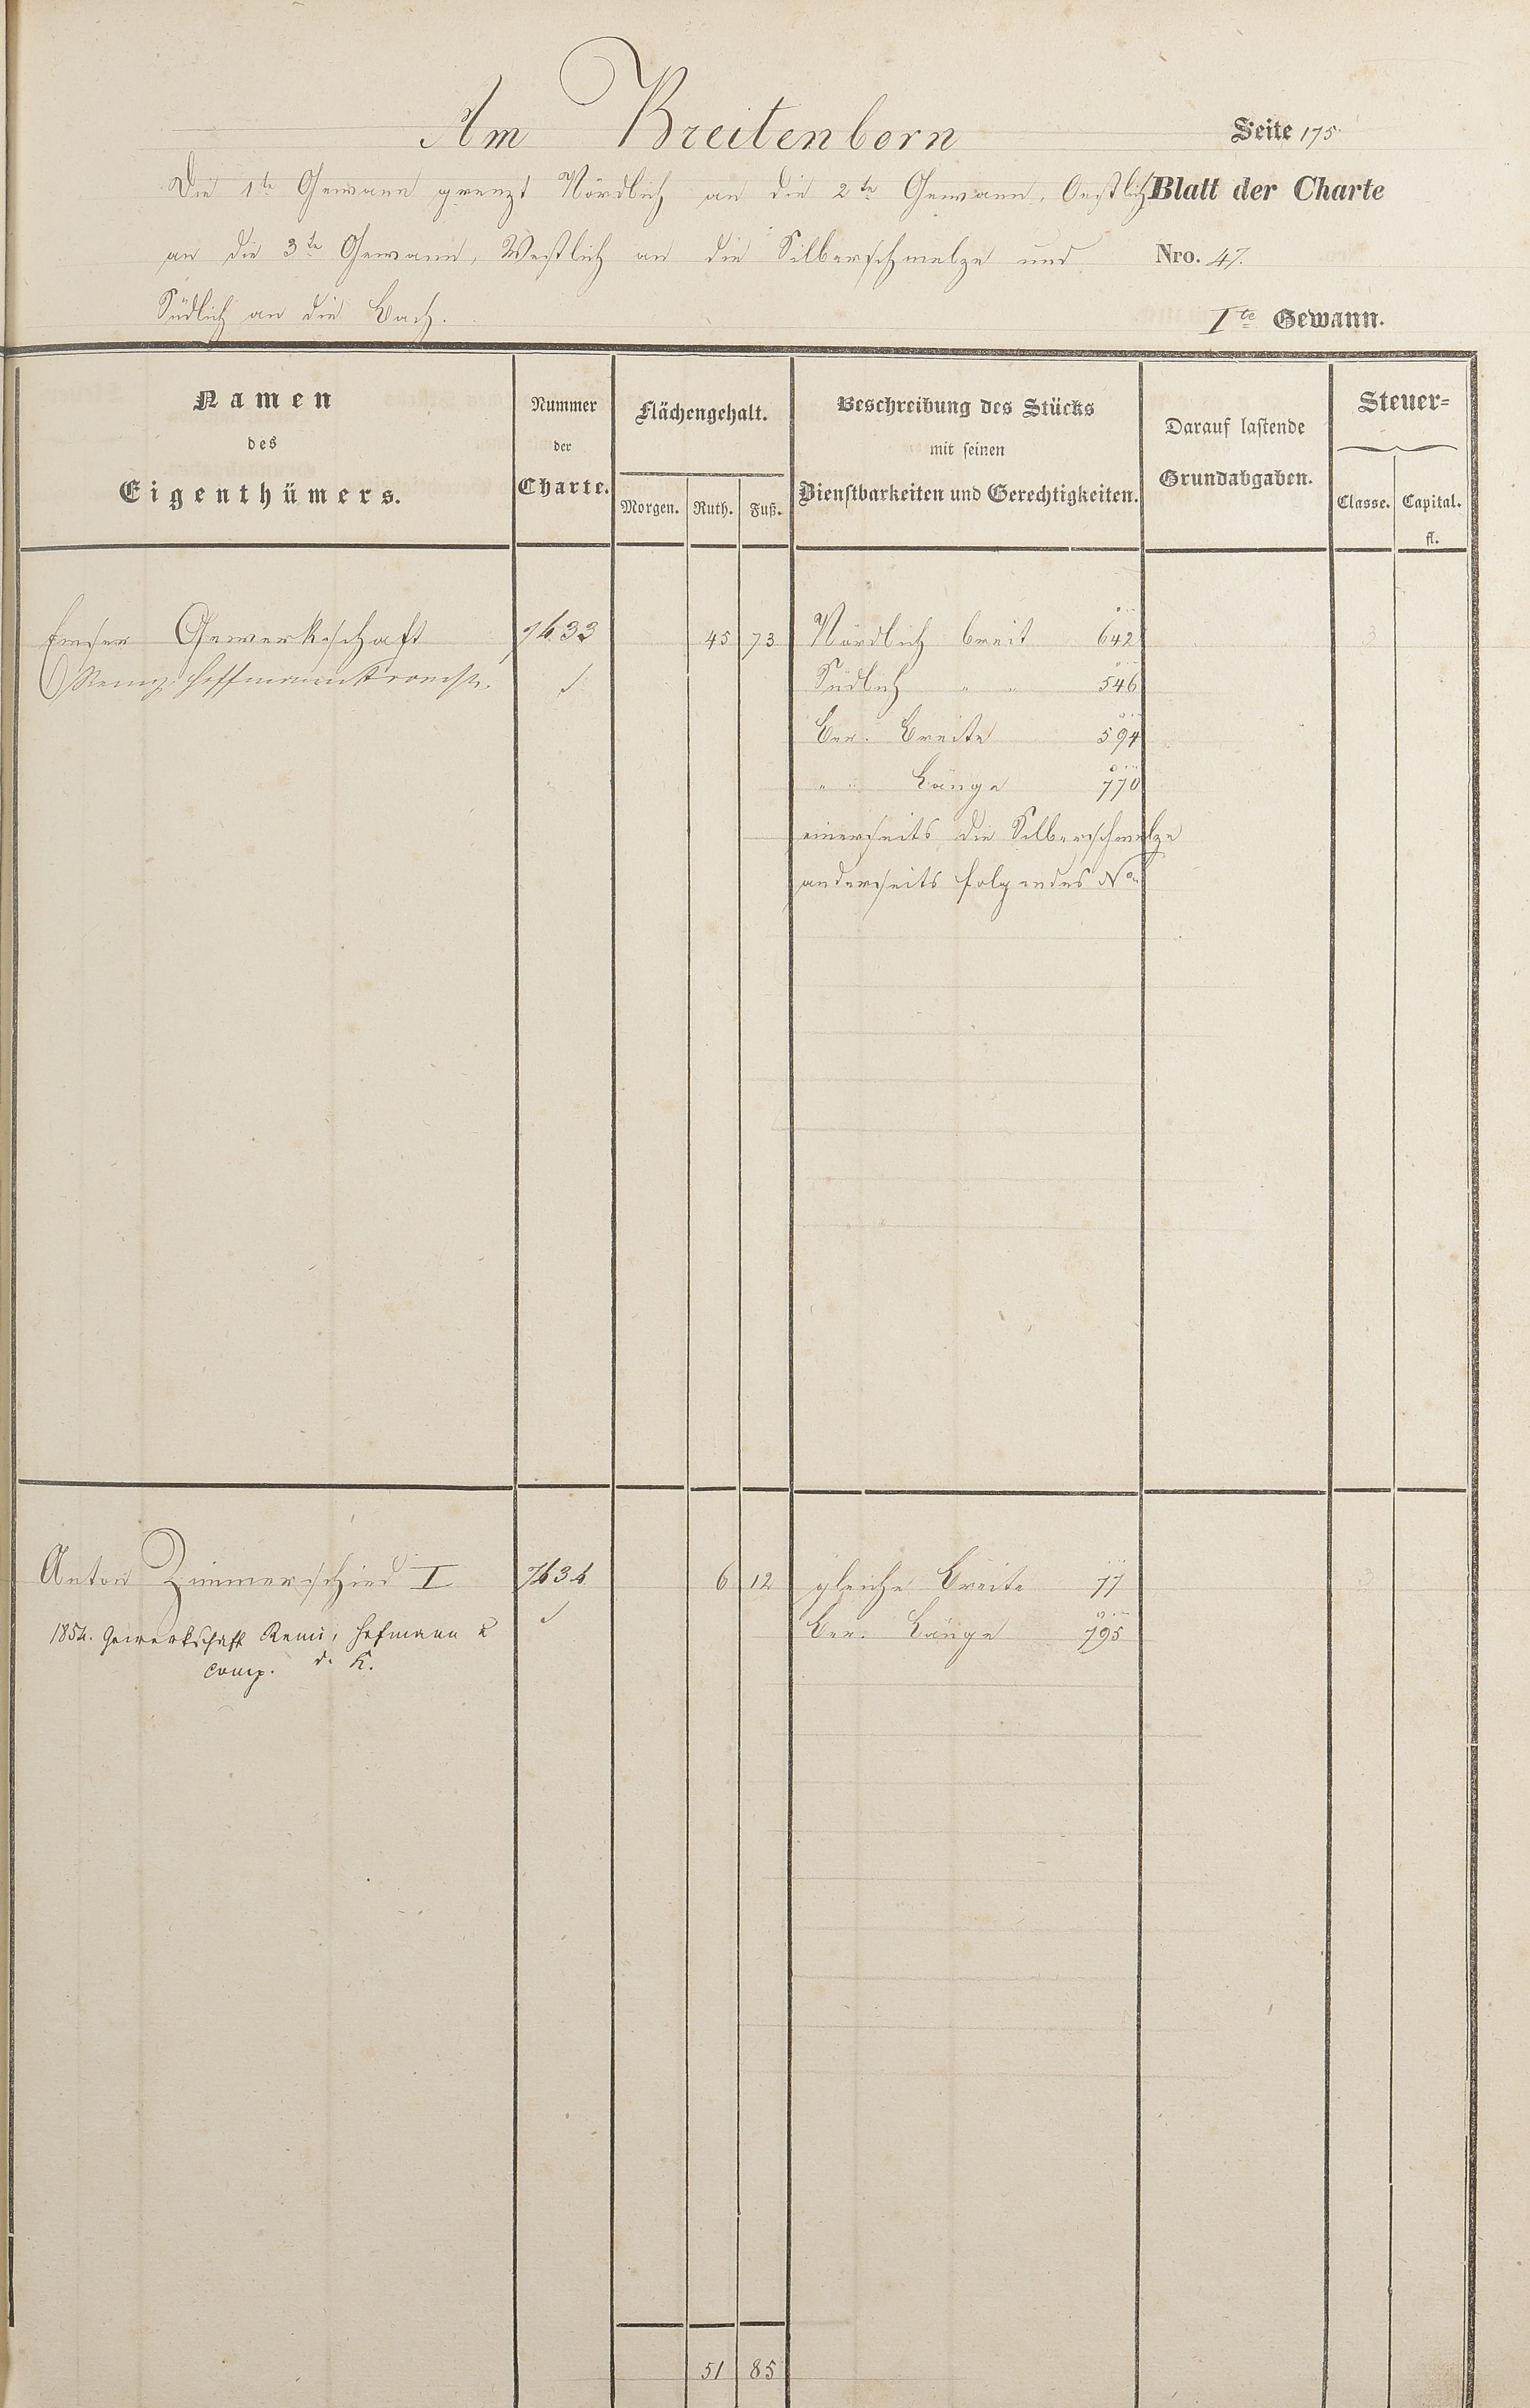 Am Breitenborn
Seite 175
Die 1te Gewann grenzt Nördlich an die 2te Gewann, Oestlich
Blatt der Charte
an die 3te Gewann, Westlich an die Silberschmelze und
Nro. 47.
Südlich an die Bach.
Ite Gewann.
Namen
des
Eigenthümers.
Nummer
der
Charte.
Flächengehalt.
Morgen. Ruth. Fuß.
Beschreibung des Stücks
mit seinen
Dienstbarkeiten und Gerechtigkeiten.
Darauf lastende
Grundabgaben.
Steuer=
Classe. Capital.
fl.
Emser Gewerkschaft 7433 45 73 Nördlich breit 642 3
Hoffmann
Südlich " " 546
Ber. Breite 594
" " Länge 770
einerseits die Silberschmelze
anderseits folgendes No
Anton Zimmerschied I 7434 6 12 gleiche Breite 77
1854. Gewerkschaft Remi, Hofmann &
Ber. Länge 795
comp. d. K.
51 85